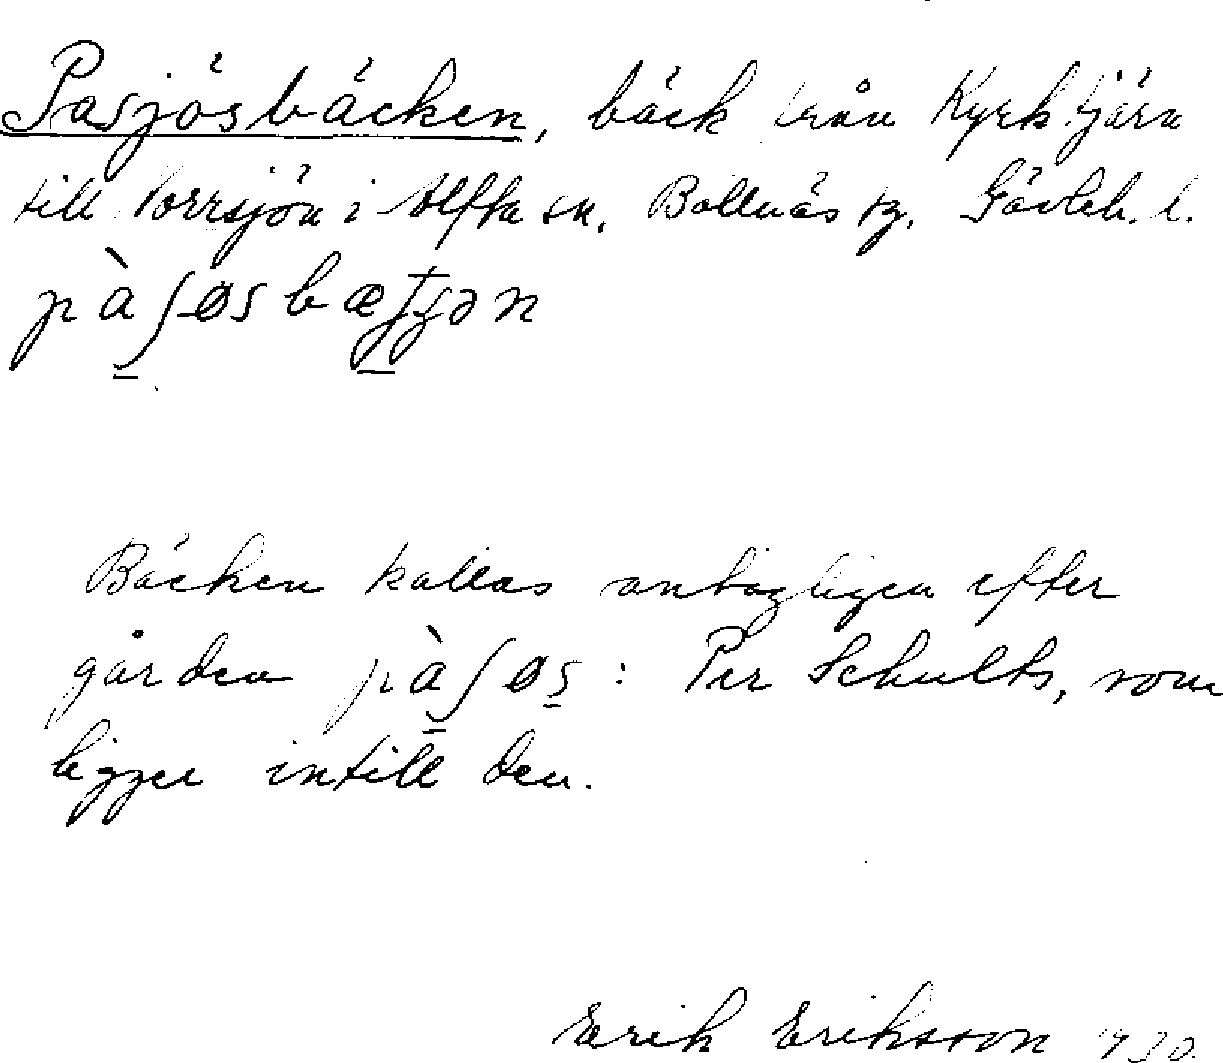 Pasjösbäcken, bäck från Kyrktjärn
till Norrsjön i Alfta sn, Bollnäs tg, Gävleb. l.
Bäcken kallas antagligen efter
gården pàʃøs : Per Schults, som
ligger intill den.
Erik Eriksson 1930.